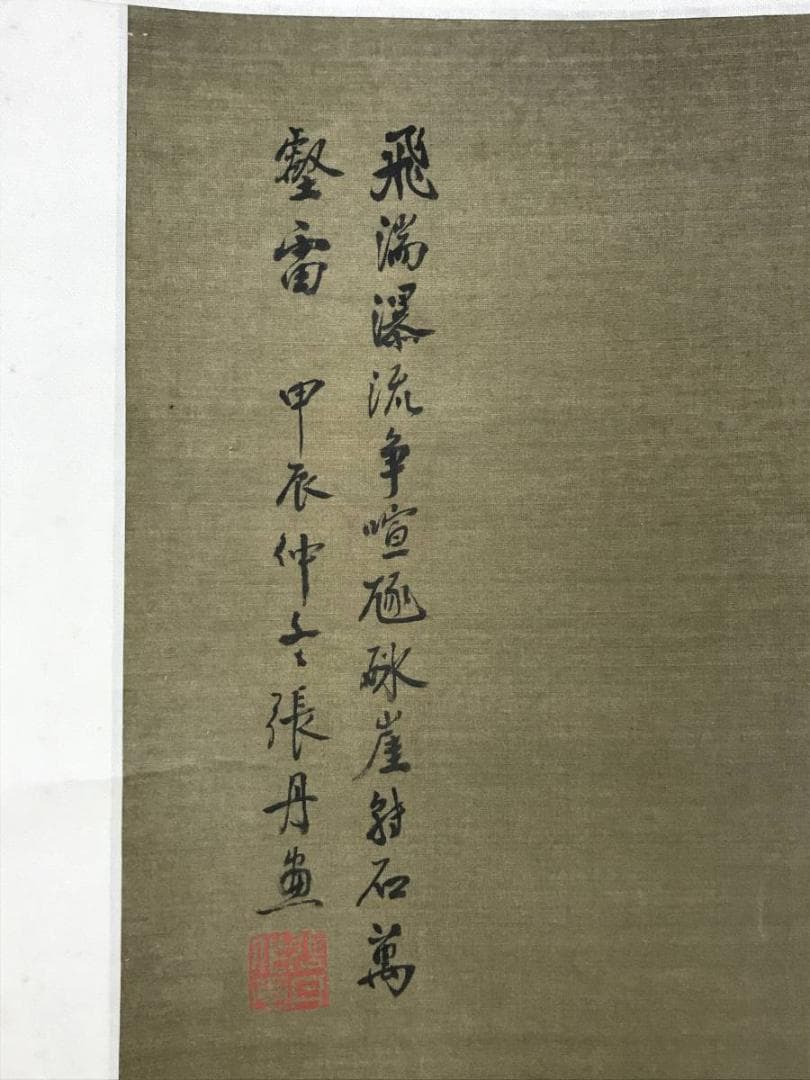 飛湍瀑流争喧豗砅崖轉石萬
壑雷 甲辰仲冬張丹畫